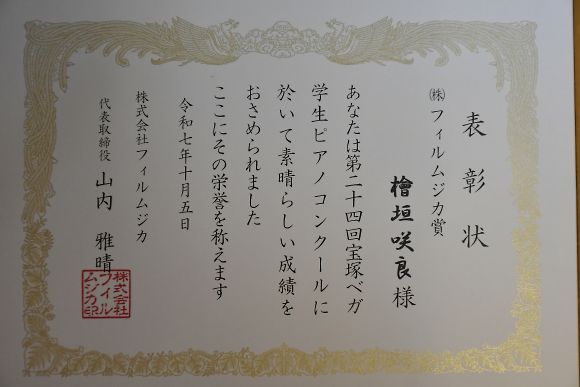 表彰状
㈱フィルムジカ賞
檜垣咲良様
あなたは第二十四回宝塚ベガ
学生ピアノコンクールに
於いて素晴らしい成績を
おさめられました
ここにその栄誉を称えます
令和七年十月五日
株式会社フィルムジカ
代表取締役 山内 雅晴
株式会社
フィル
ムジカ印